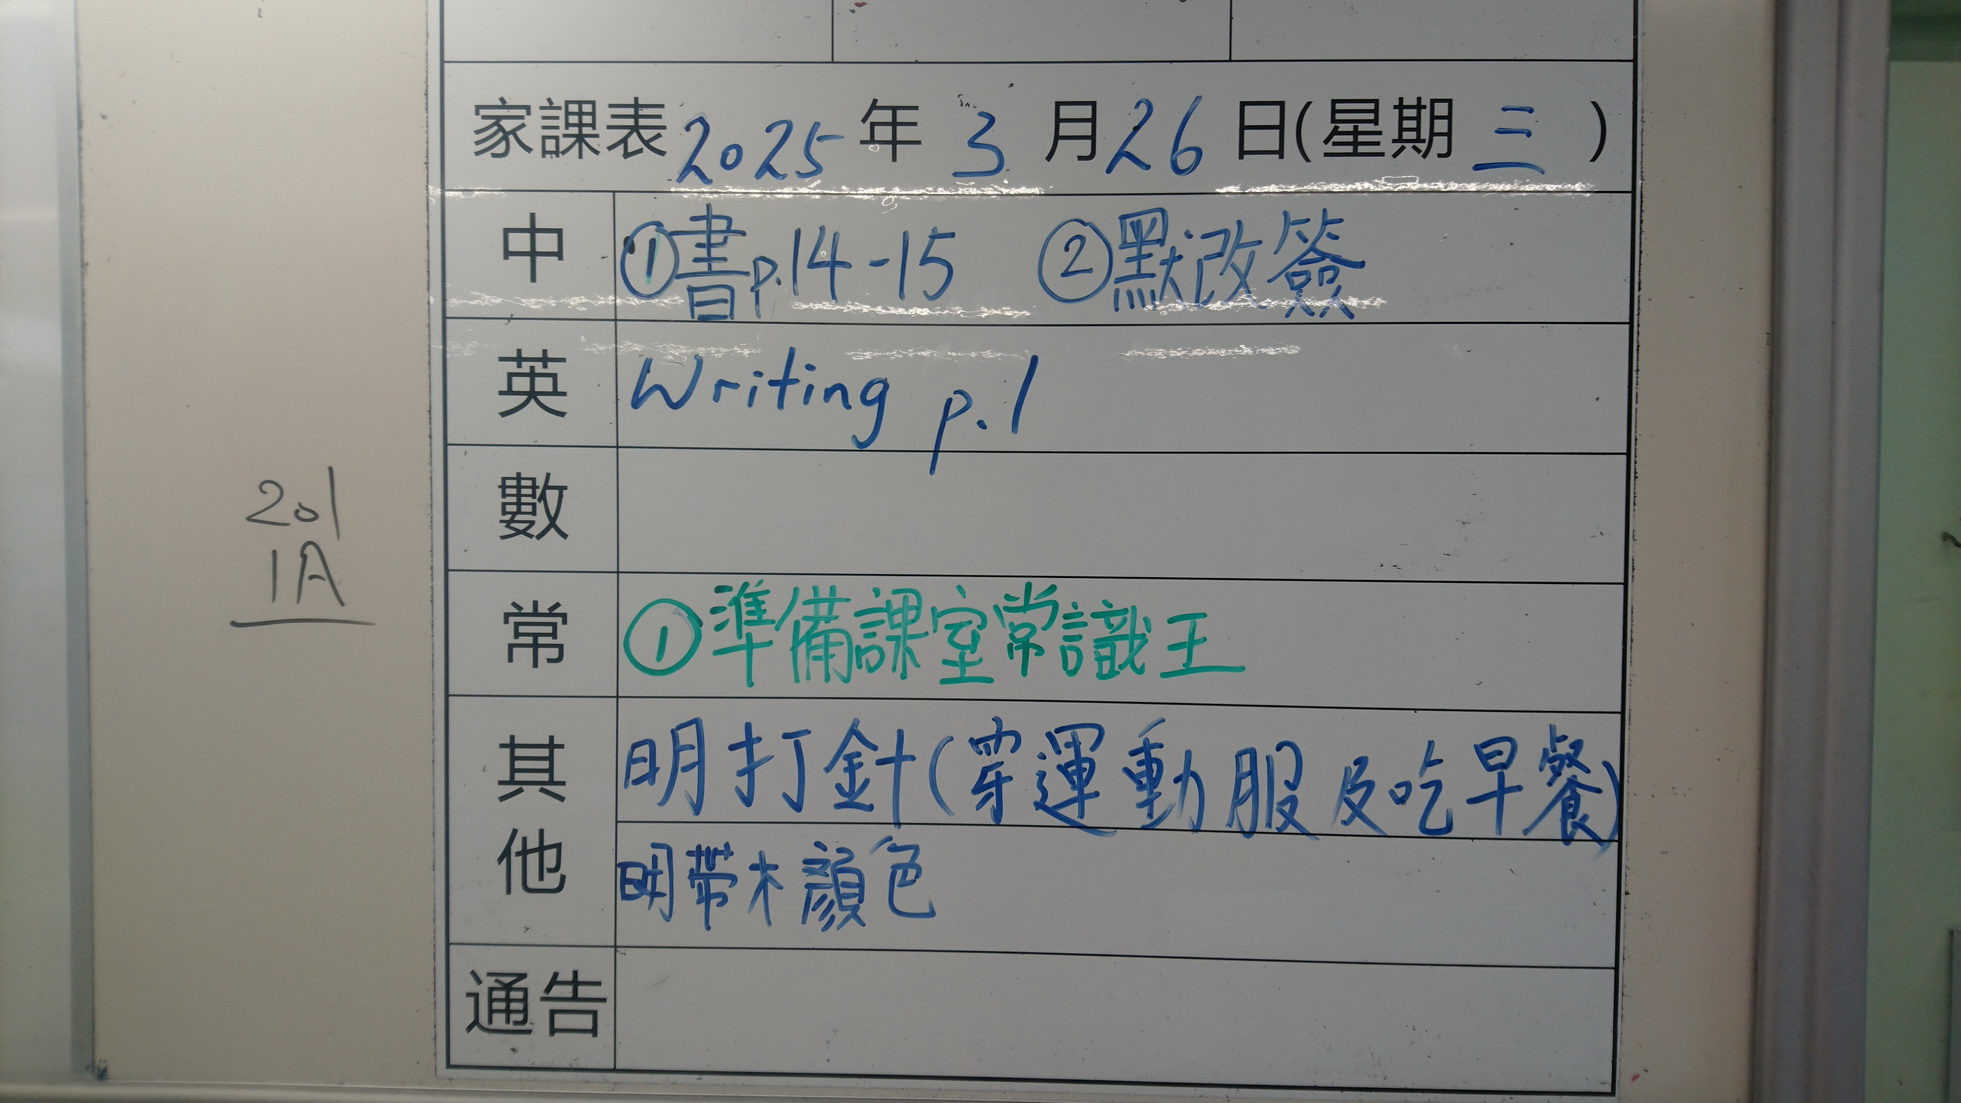 家課表 2025 年 3 月 26 日(星期 三 )
中 ①書p.14-15 ②默改簽
英 Writing p.1
數
常 ①準備課室常識王
其他 明打針(穿運動服及吃早餐)
明帶木顏色
通告
201
1A